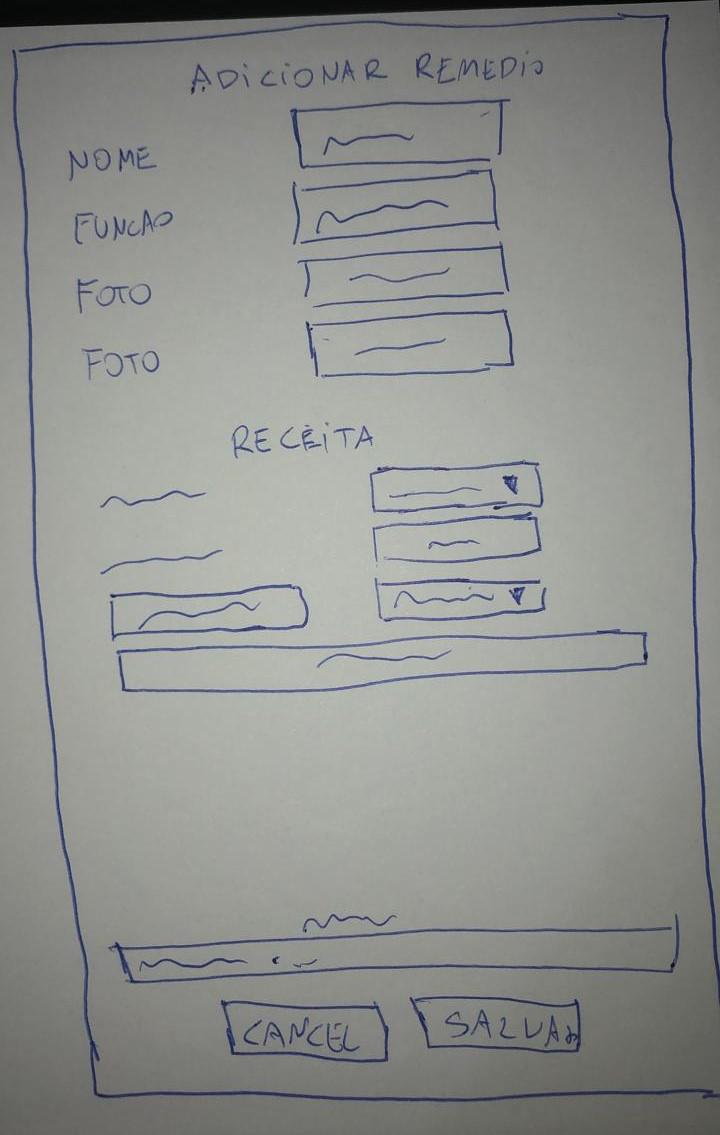 ADICIONAR REMEDIO
NOME
FUNCAO
FOTO
FOTO
RECEITA
CANCEL
SALVAR